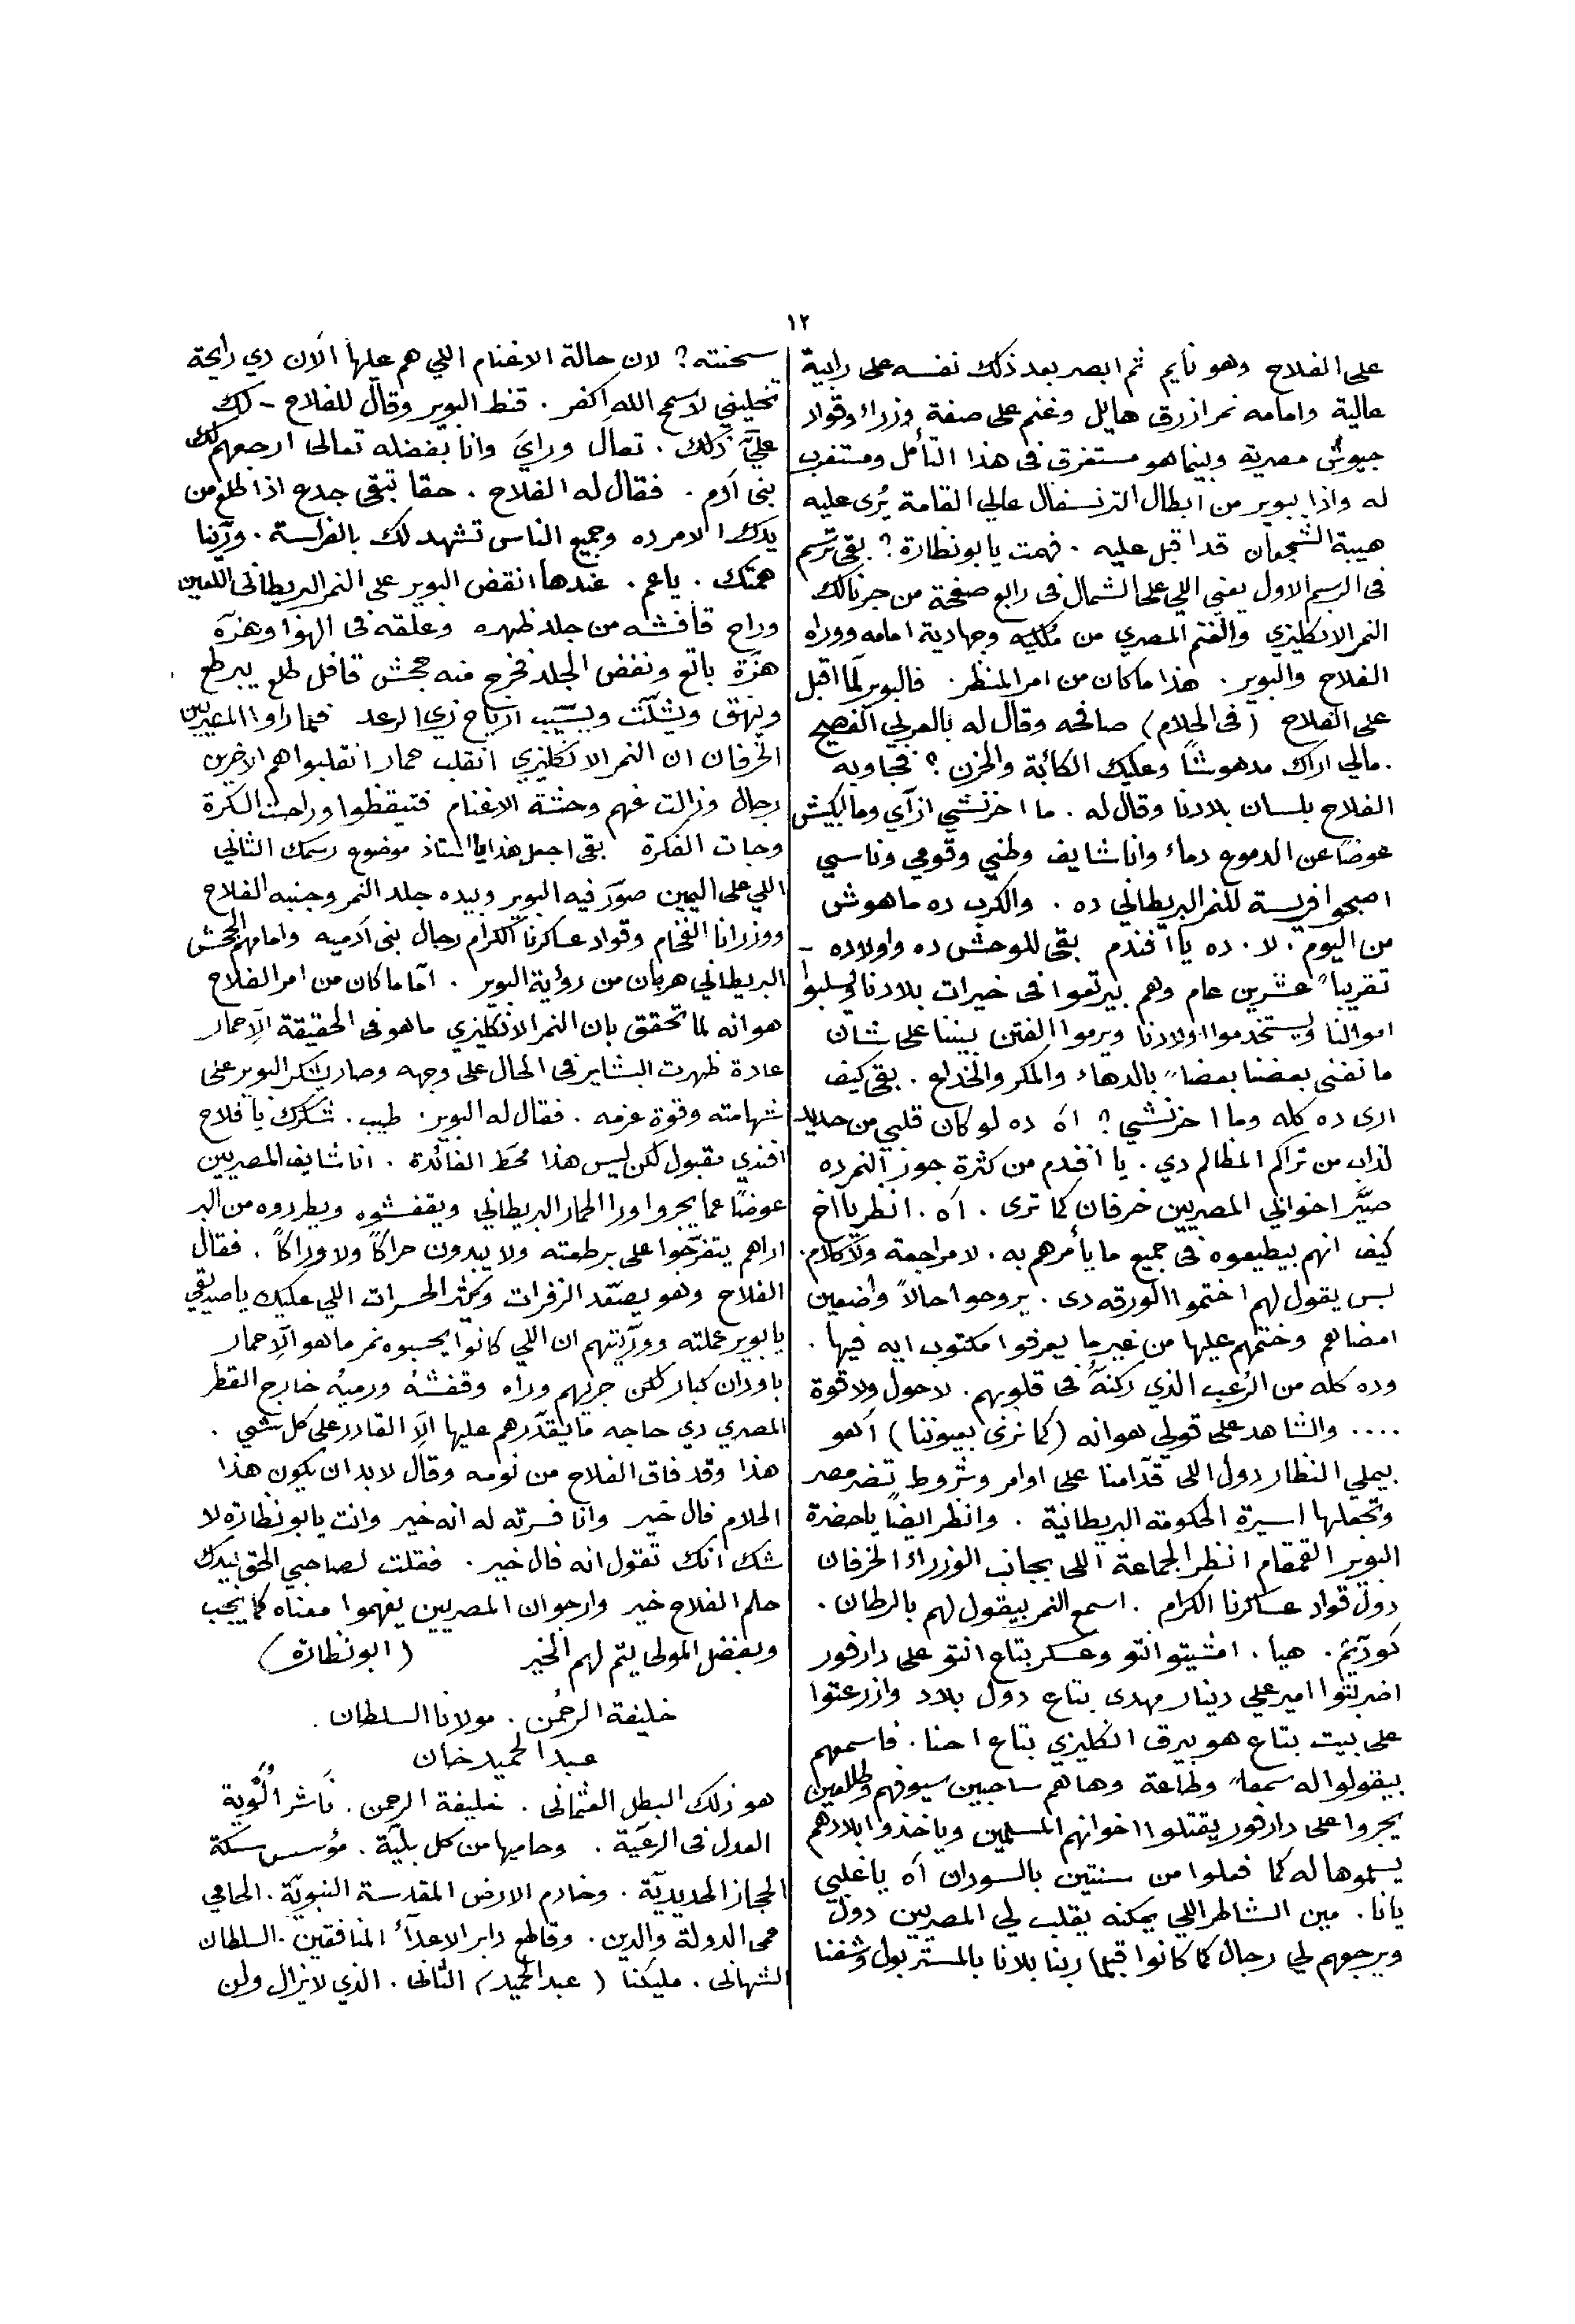 ١٢
على الفلاح وهو نايم ثم ابصر بعد ذلك نفسه على رابية
عالية وامامه نمر ازرق هايل وغنم على صفة وزراء وقواد
جيوش مصرية وبينما هو مستغرق فى هذا التأمل ومستغرب
له واذا ببوير من ابطال الترنسفال عالي القامة يُرى عليه
هيبة الشجعان قد اقبل عليه . فهمت يا بونظارة ؟ بقى ترسم
فى الرسم الاول يعني اللي على الشمال فى رابع صفحة من جرنالك
النمر الانكليزي والغنم المصري من مُلكيه وجهادية امامه ووراه
الفلاح والبوير . هذا ما كان من امر المنظر . فالبوير لمّا اقبل
على الفلاح (فى الحلام) صافحه وقال له بالعربي الفصيح
. مالي اراك مدهوشًا وعليك الكائبة والحزن ؟ فجاوبه
الفلاح بلسان بلادنا وقال له . ما احزنشي ازاي وما ابكيش
عوضًا عن الدموع دماء وانا شايف وطني وقومي وناسي
اصبحوا فريسة للنمر البريطاني ده . والكرب ده ماهوش
من اليوم . لا . ده يا افندم بقى للوحش ده واولاده -
تقريبًا عشرين عام وهم بيرتعوا فى خيرات بلادنا ويسلبوا
اموالنا ويستخدموا اولادنا ويرموا الفتن بيننا على شان
ما نفنى بعضنا بعضًا بالدهاء والمكر والخداع . بقى كيف
ارى ده كله وما احزنشي ؟ اه ده لو كان قلبي من حديد
لذاب من تراكم المظالم دي . يا افندم من كثرة جور النمر ده
صيَّر اخواني المصريين خرفان كما ترى . اه . انظر يا اخ
كيف انهم بيطيعوه فى جميع ما يأمرهم به . لا مراجعة ولا كلام .
بس يقول لهم اختموا الورقه دى . يروحوا حالاً واضعين
امضاهم وختمهم عليها من غير ما يعرفوا مكتوب ايه فيها .
وده كله من الرُعب الذي ركنهُ فى قلوبهم . لا حول ولا قوة
.... والشاهد على قولي هو انه (كما نرى بعيوننا) اهو
بيملي النظار دول اللى قدّامنا على اوامر وشروط تضر مصر
وتجعلها اسيرة الحكومه البريطانية . وانظر ايضًا يا حضرة
البوير القمقام انظر الجماعة اللى بجانب الوزراء الخرفان
دول قواد عساكرنا الكرام . اسمع النمر بيقول لهم بالرطان .
هيا . امشيتو انتو وعسكر بتاع انتو على دارفور
اضربتوا امير علي دينار مهدى بتاع دول بلاد وازرعتوا
على بيت بتاع هو بيرق انكليزي بتاع احنا . فاسمعهم
بيقولوا له سمعًا وطاعة وهاهم ساحبين سيوفهم وطالعين
يجروا على دارفور يقتلوا اخوانهم المسلمين وياخذوا بلادهم
يسلموها له كما فعلوا من سنتين بالسودان اه يا غلبي
يانا . مين الشاطر اللي يمكنه يقلب لي المصريين دول
ويرجعهم لي رجال كما كانوا قبلما ربنا بلانا بالمستر بول وشفنا
سحنته ؟ لان حالة الاغنام اللي هم عليها الآن دي رايحة
تخليني لا سمح الله اكفر . فنط البوير وقال للفلاح - لك
عليَّ ذلك . تعال وراي وانا بفضله تعالى ارجعهم لك
بنى آدم . فقال له الفلاح . حقا تبقى جدع اذا طلع من
يدك الامر ده وجميع الناس تشهد لك بالفراسة . ورّينا
همتك . يا عم . عندها انقض البوير على النمر البريطانى اللعين
وراح قافشه من جلد ظهره وعلقه فى الهوا وهزه
هزة باتع ونفض الجلد فخرج منه جحش قافل طلع يبرطع
وينهق ويشلّت ويسيّب ارياح زي الرعد فلما راوا المعيرين
الخرفان ان النمر الانكليزي انقلب حمار انقلبوا هم الاخرين
رجال وزالت عنهم وحشة الاغنام فتيقظوا وراحت السكرة
وجات الفكرة بقى اجعل هذا يا استاذ موضوع رسمك الثاني
اللي على اليمين صوّر فيه البوير وبيده جلد النمر وجنبه الفلاح
ووزرانا الفخام وقواد عساكرنا الكرام رجال بنى آدميه وامامهم الجحش
البريطاني هربان من رؤية البوير . امّا ما كان من امر الفلاح
هو انه لما تحقق بان النمر الانكليزي ما هو فى الحقيقة الّا حمار
عادة ظهرت البشاير فى الحال على وجهه وصار يشكر البوير على
شهامته وقوة عزمه . فقال له البوير . طيب . شكرك يا فلاح
افندي مقبول لكن ليس هذا محَط الفائدة . انا شايف المصريين
عوضًا عما يجروا ورا الحمار البريطاني ويقفشوه ويطردوه من البر
اراهم يتفرّجوا على برطعته ولا يبدون حراكًا ولا وراكًا . فقال
الفلاح وهو يصعّد الزفرات ويكثر الحسرات اللي عليك يا صديقي
يا بوير عملته ووريّتهم ان اللي كانوا يحسبوه نمر ما هو الّا حمار
باودان كبار لكن جريهم وراه وقفشهُ ورميهُ خارج القطر
المصري دي حاجه ما يقدّرهم عليها الّا القادر على كل شي .
هذا وقد فاق الفلاح من نومه وقال لا بد ان يكون هذا
الحلام فال خير وانا فسرته له انه خير وانت يا بو نظارة لا
شك انك تقول انه فال خير . فقلت لصاحبي الحق بيدك
حلم الفلاح خير وارجو ان المصريين يفهموا معناه كما يجب
وبفضل المولى يتم لهم الخير (ابو نظارة)
خليفة الرحمٰن . مولانا السلطان .
عبد الحميد خان
هو ذلك البطل العثمانى . خليفة الرحمن . ناشر الُوية
العدل فى الرعيّة . وحاميها من كل بليّة . مؤسس سكة
الحجاز الحديديّة . وخادم الارض المقدسة النبويّة . الحامي
حمى الدولة والدين . وقاطع دابر الاعدآء المنافقين . السلطان
الشهانى . مليكنا (عبد الحميد) الثانى . الذي لا يزال ولن